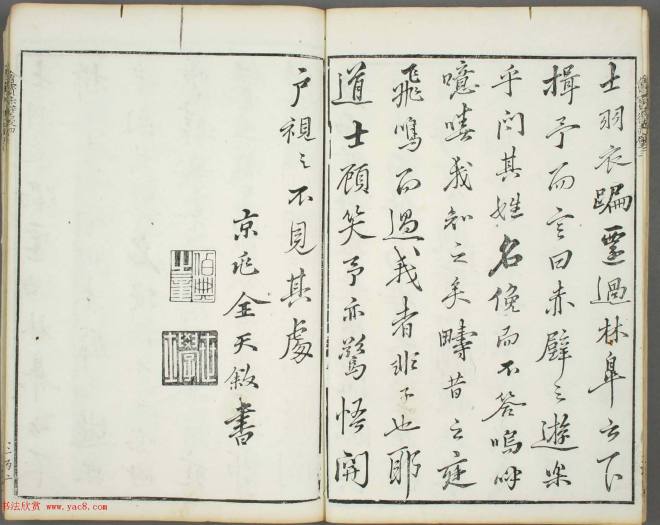 士羽衣蹁躚過林皋之下
揖予而言曰赤壁之遊樂
乎问其姓名俛而不答嗚呼
噫嘻我知之矣疇昔之夜
飛鳴而過我者非子也耶
道士顾笑予亦驚悟開
户視之不見其處
京兆金天敘書
书法欣赏 www.yac8.com